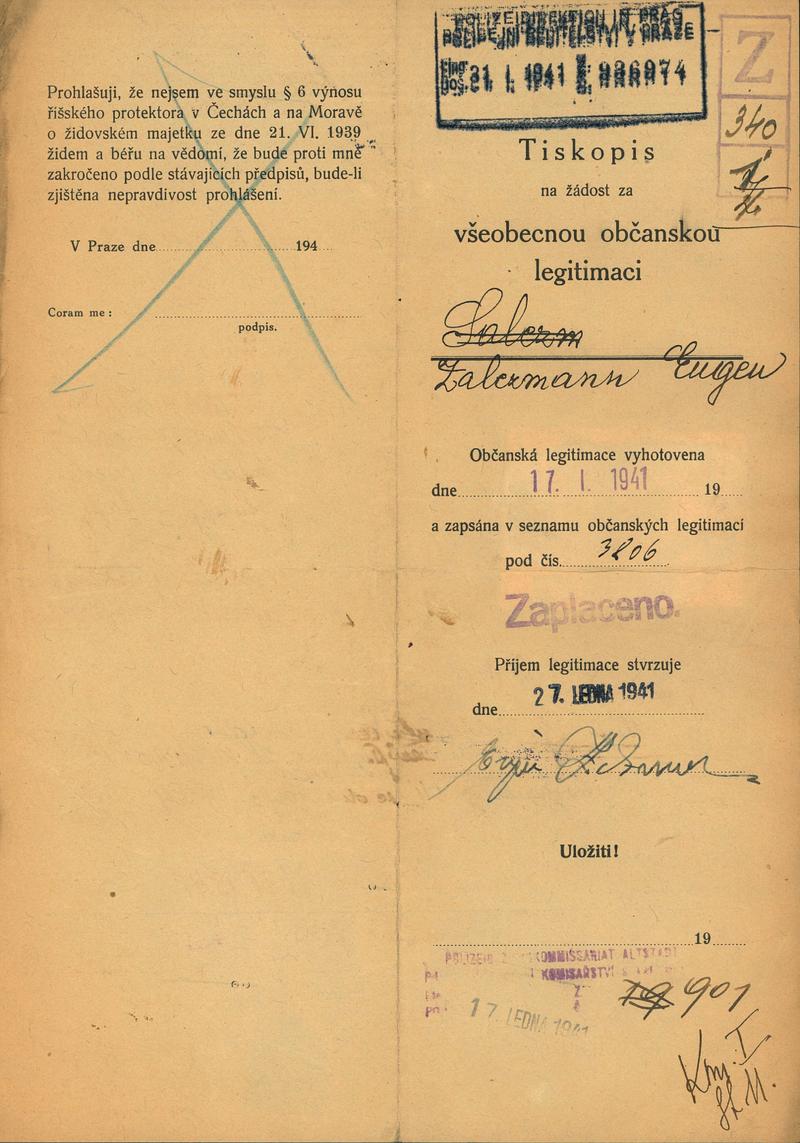 Prohlašuji, že nejsem ve smyslu § 6 výnosu
říšského protektora v Čechách a na Moravě
o židovském majetku ze dne 21. VI. 1939
židem a béřu na vědomí, že bude proti mně
zakročeno podle stávajících předpisů, bude-li
zjištěna nepravdivost prohlášení.
V Praze dne 194
Coram me :
podpis.
POLIZEIDIREKTION IN PRAG
POLICEJNÍ ŘEDITELSTVÍ V PRAZE
31 I. 1941
Z
340
Tiskopis
na žádost za
všeobecnou občanskou
legitimaci
Zalermann Eugen
Občanská legitimace vyhotovena
dne 17. I. 1941 19
a zapsána v seznamu občanských legitimací
pod čís. 3806
Zaplaceno.
Příjem legitimace stvrzuje
dne 27. LEDNA 1941
Uložiti!
19
KOMMISSARIAT ALTSTADT
KOMISAŘSTVÍ
17. LEDNA 1941
901